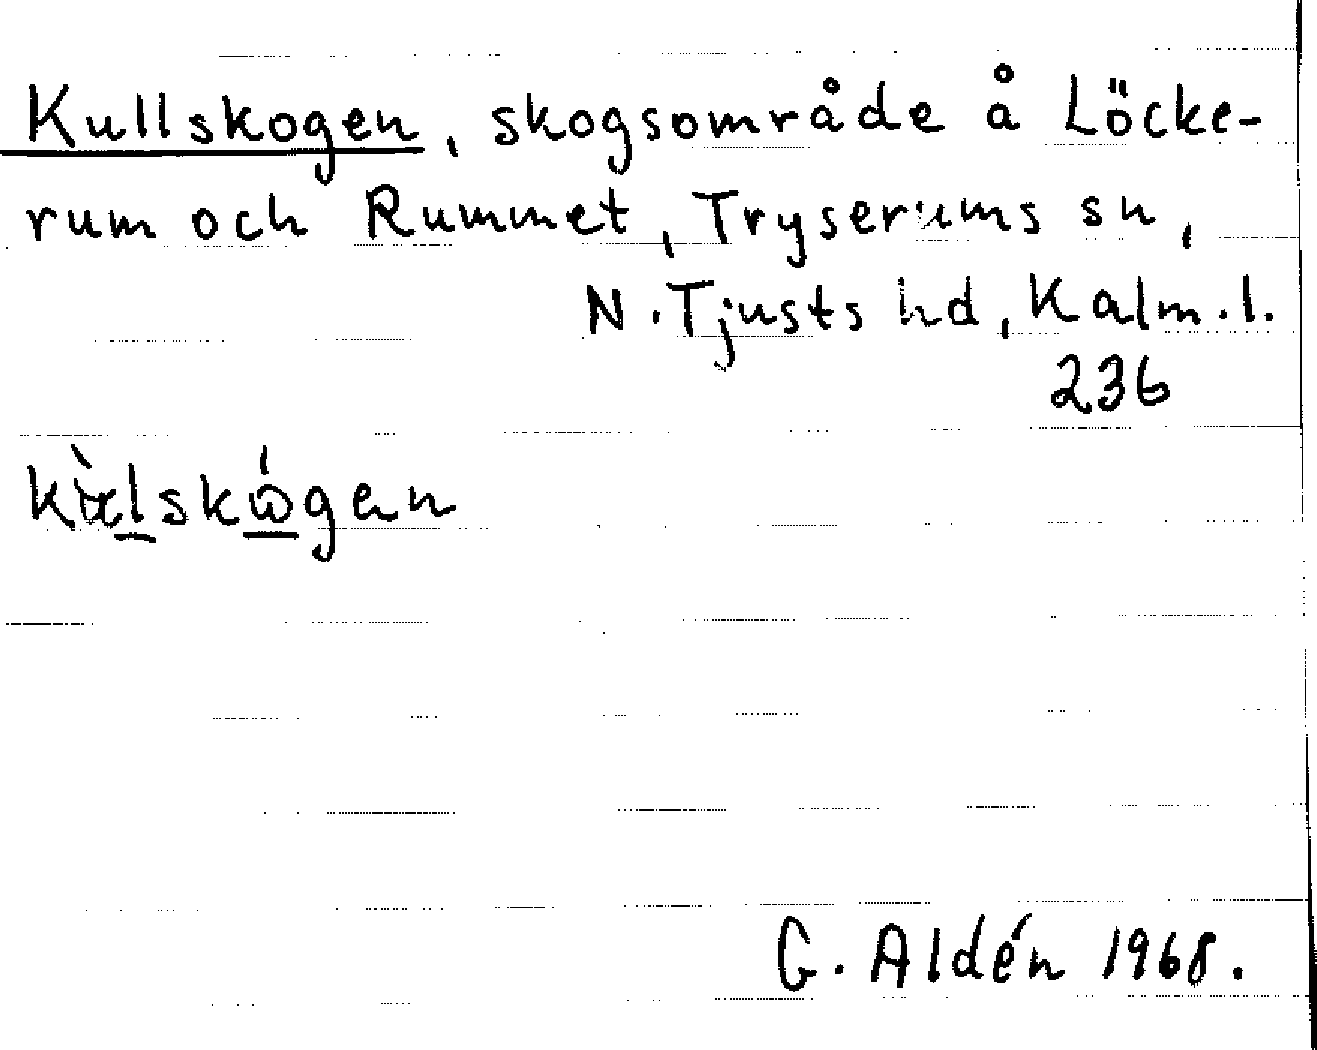 Kullskogen, skogsområde å Löcke-
rum och Rummet, Tryserums sn,
N. Tjusts hd, Kalm. l.
236
G. Aldén 1968.